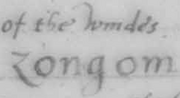 of the winde's
Zongom